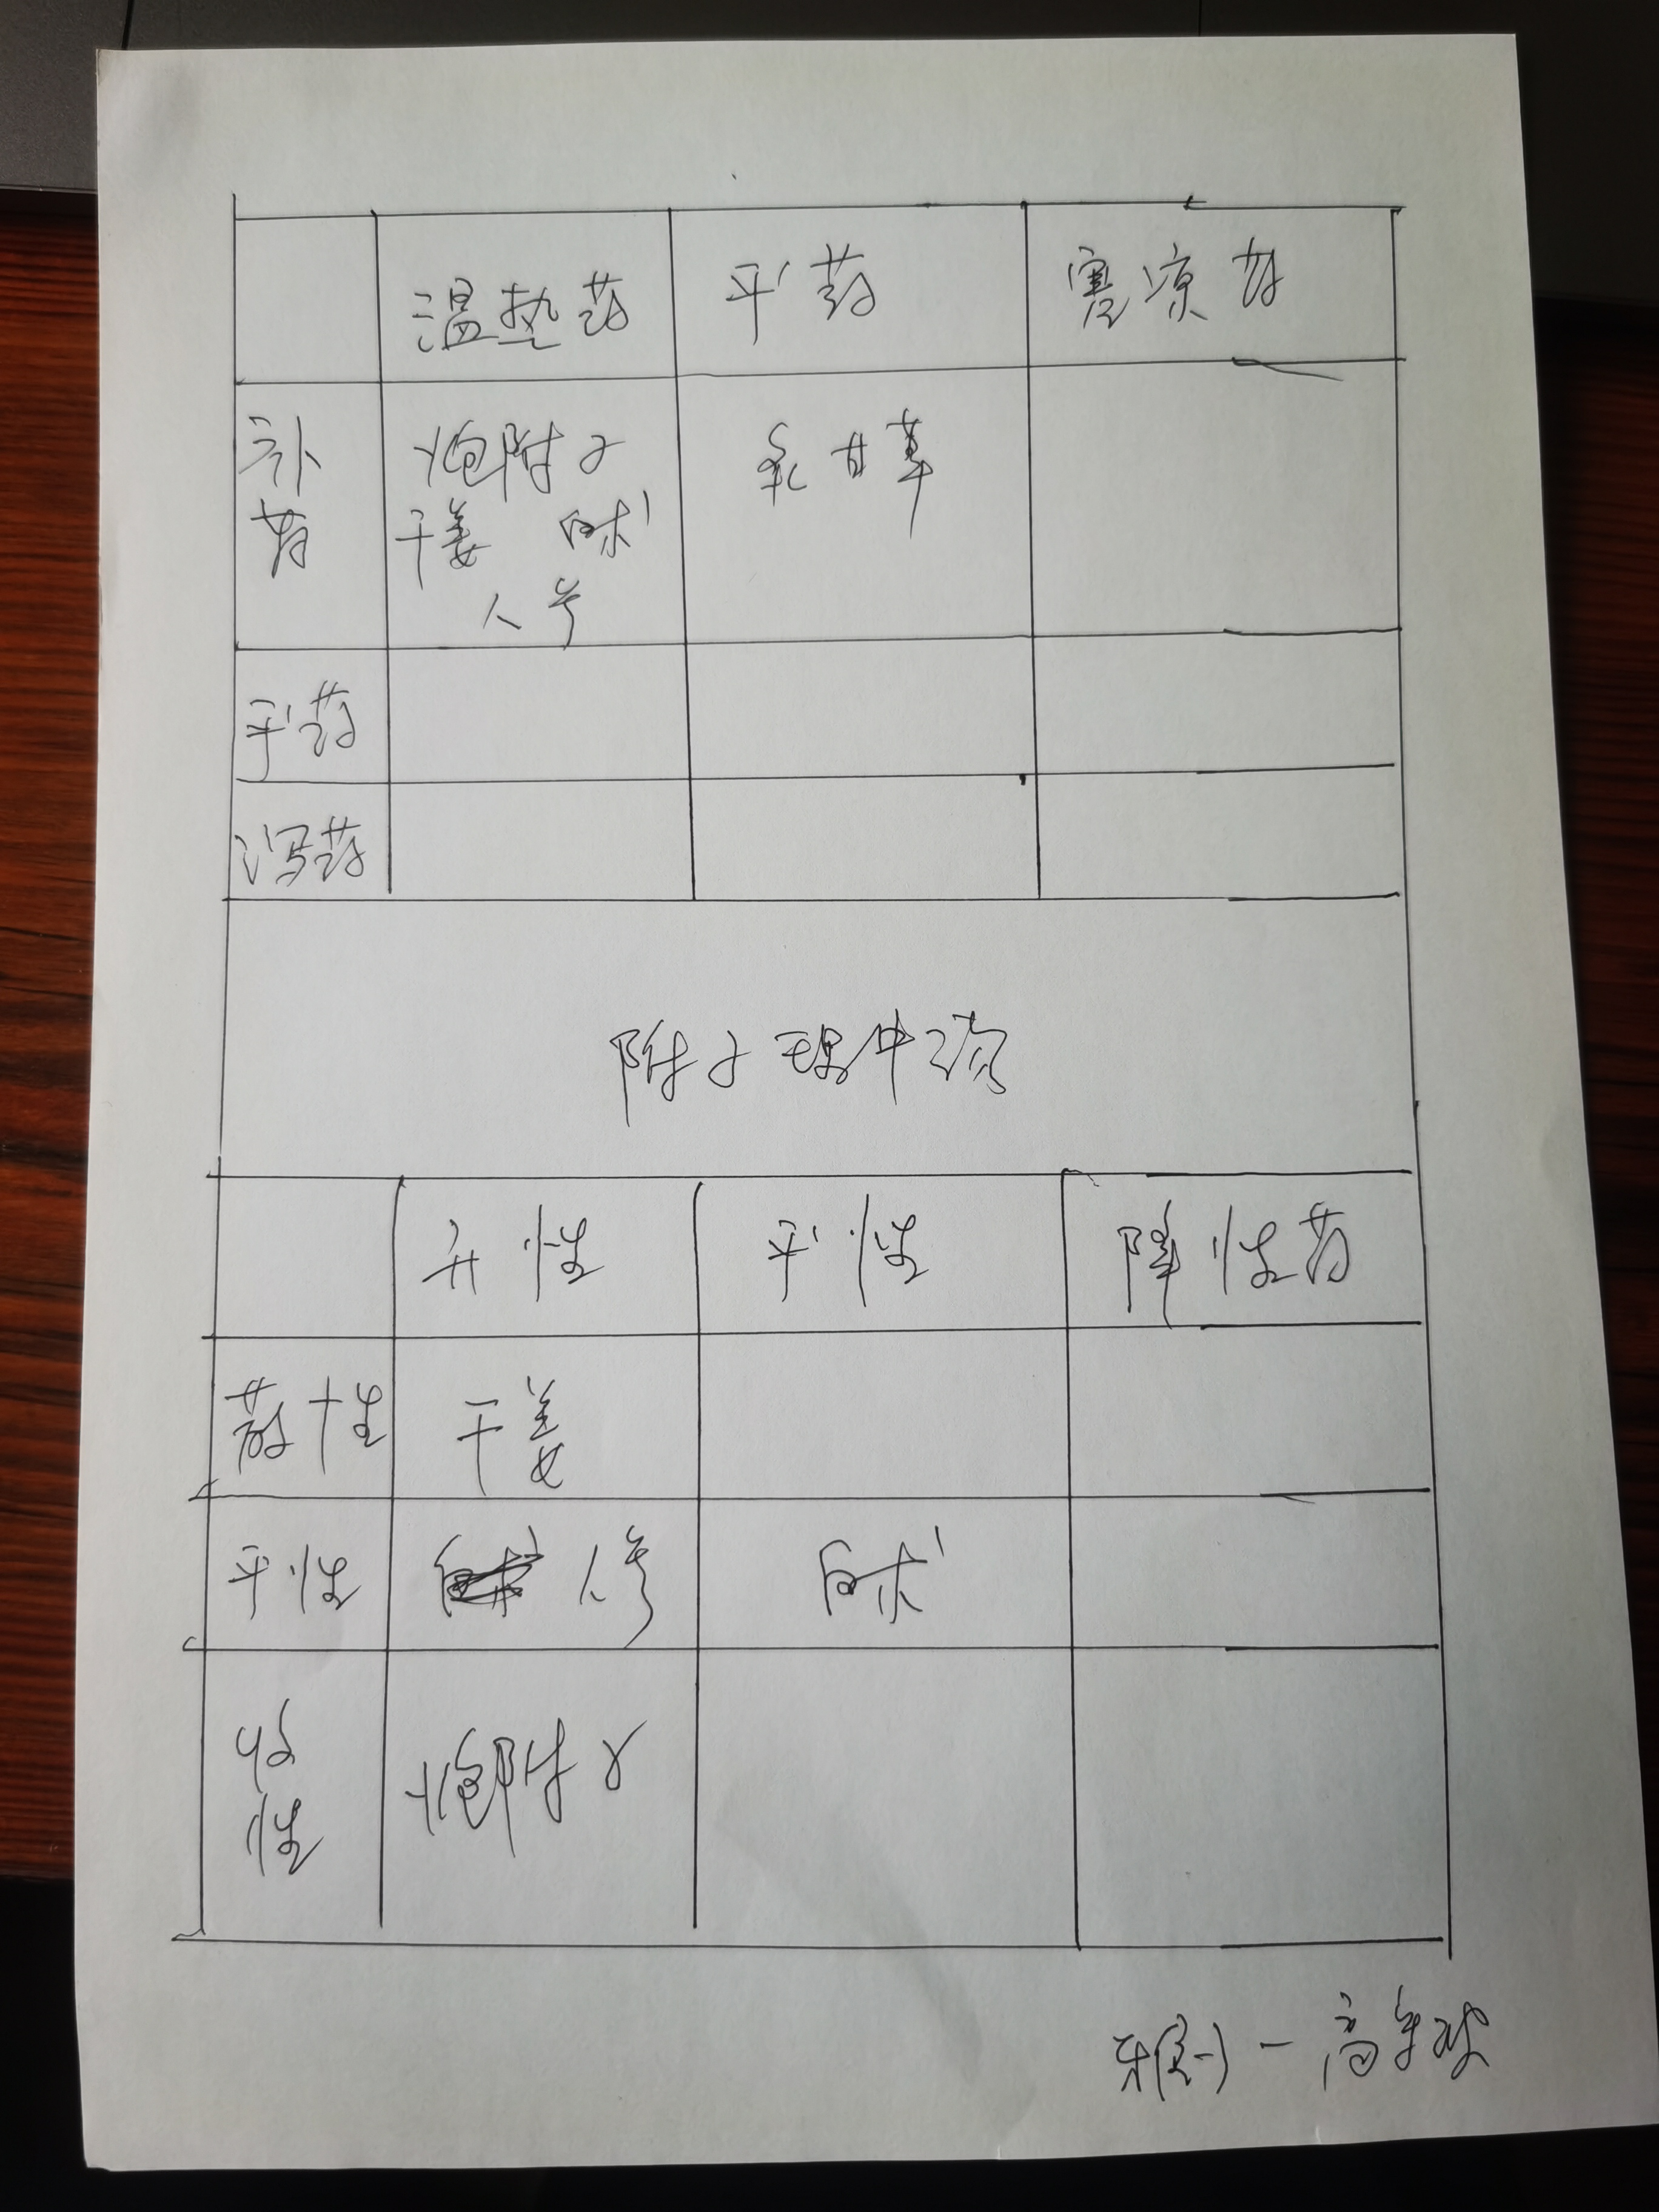 温热药 平药 寒凉药
补药
炮附子
干姜 白术
人参
炙甘草
平药
泻药
附子理中汤
升性 平性 降性药
散性 干姜
平性 人参 白术
收性 炮附子